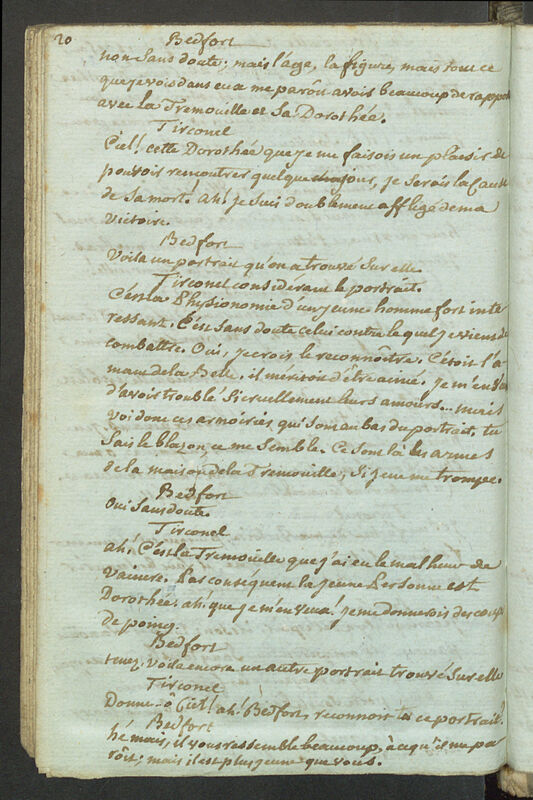 20
Bedfort
non sans doute; mais l'age, la figure, mais tout ce
que je vois dans eux me paroit avoir beaucoup de rapport
avec La Tremouille et Sa Dorothée.
Tirconel
Ciel! cette Dorothée que je me faisois un plaisir de
pouvoir rencontrer quelque jour, je serois la cause
de sa mort! ah! je suis doublement affligé de ma
victoire.
Bedfort
Voila un portrait qu'on a trouvé sur elle.
Tirconel considerant le portrait.
C'est la Physionomie d'un jeune homme fort inte
ressant. C'est sans doute celui contre lequel je viens de
combattre. Oui, je crois le reconnôitre. C'étoit l'a-
mant de la Bele. il méritoit d'être aimé. je m'en veux
d'avoir troublé si cruellement leurs amours... mais
voi donc ces armoiries qui sont au bas du portrait. tu
sais le blazon, ce me semble. Ce sont là les armes
de la maison de la Tremouille, si je ne me trompe.
Bedfort
Oui sans doute.
Tirconel
ah! C'est la Tremouille que j'ai eu le malheur de
vaincre. Par conséquent la jeune Personne est
Dorothée. ah! que je m'en veux! je me donnerois des coups
de poing.
Bedfort
tenez. voila encore un autre portrait trouvé sur elle
Tirconel
Donne. ô Ciel! ah! Bedfort, reconnois tu ce portrait?
Bedfort
hé mais, il vous ressemble beaucoup, à ce qu'il me pa
roît; mais il est plus jeune que vous.